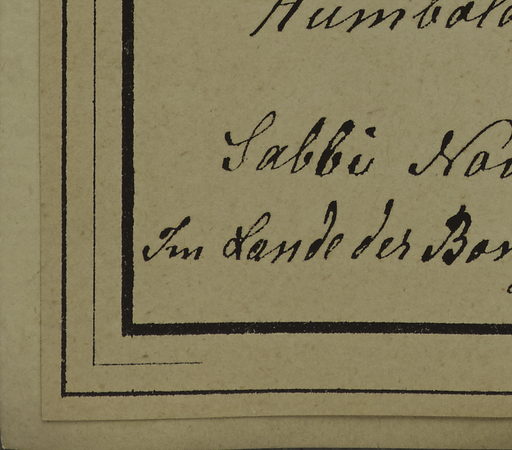 Humbold
Sabbi Nov
Im Lande der Bon